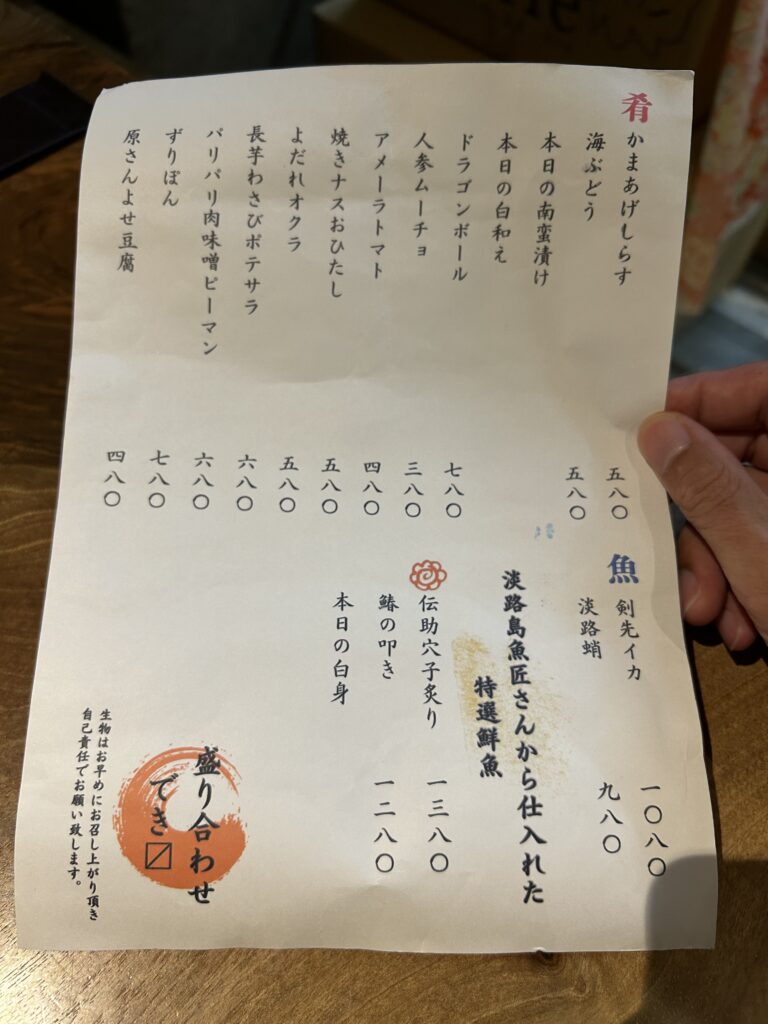 肴
かまあげしらす 五八〇
海ぶどう 五八〇
本日の南蛮漬け
本日の白和え
ドラゴンボール 七八〇
人参ムーチョ 三八〇
アメーラトマト 四八〇
焼きナスおひたし 五八〇
よだれオクラ 五八〇
長芋わさびポテサラ 六八〇
パリパリ肉味噌ピーマン 六八〇
ずりぽん 七八〇
原さんよせ豆腐 四八〇
魚
剣先イカ 一〇八〇
淡路蛸 九八〇
淡路島魚匠さんから仕入れた
特選鮮魚
伝助穴子炙り 一三八〇
鰆の叩き 一二八〇
本日の白身
盛り合わせ
でき〼
生物はお早めにお召し上がり頂き
自己責任でお願い致します。